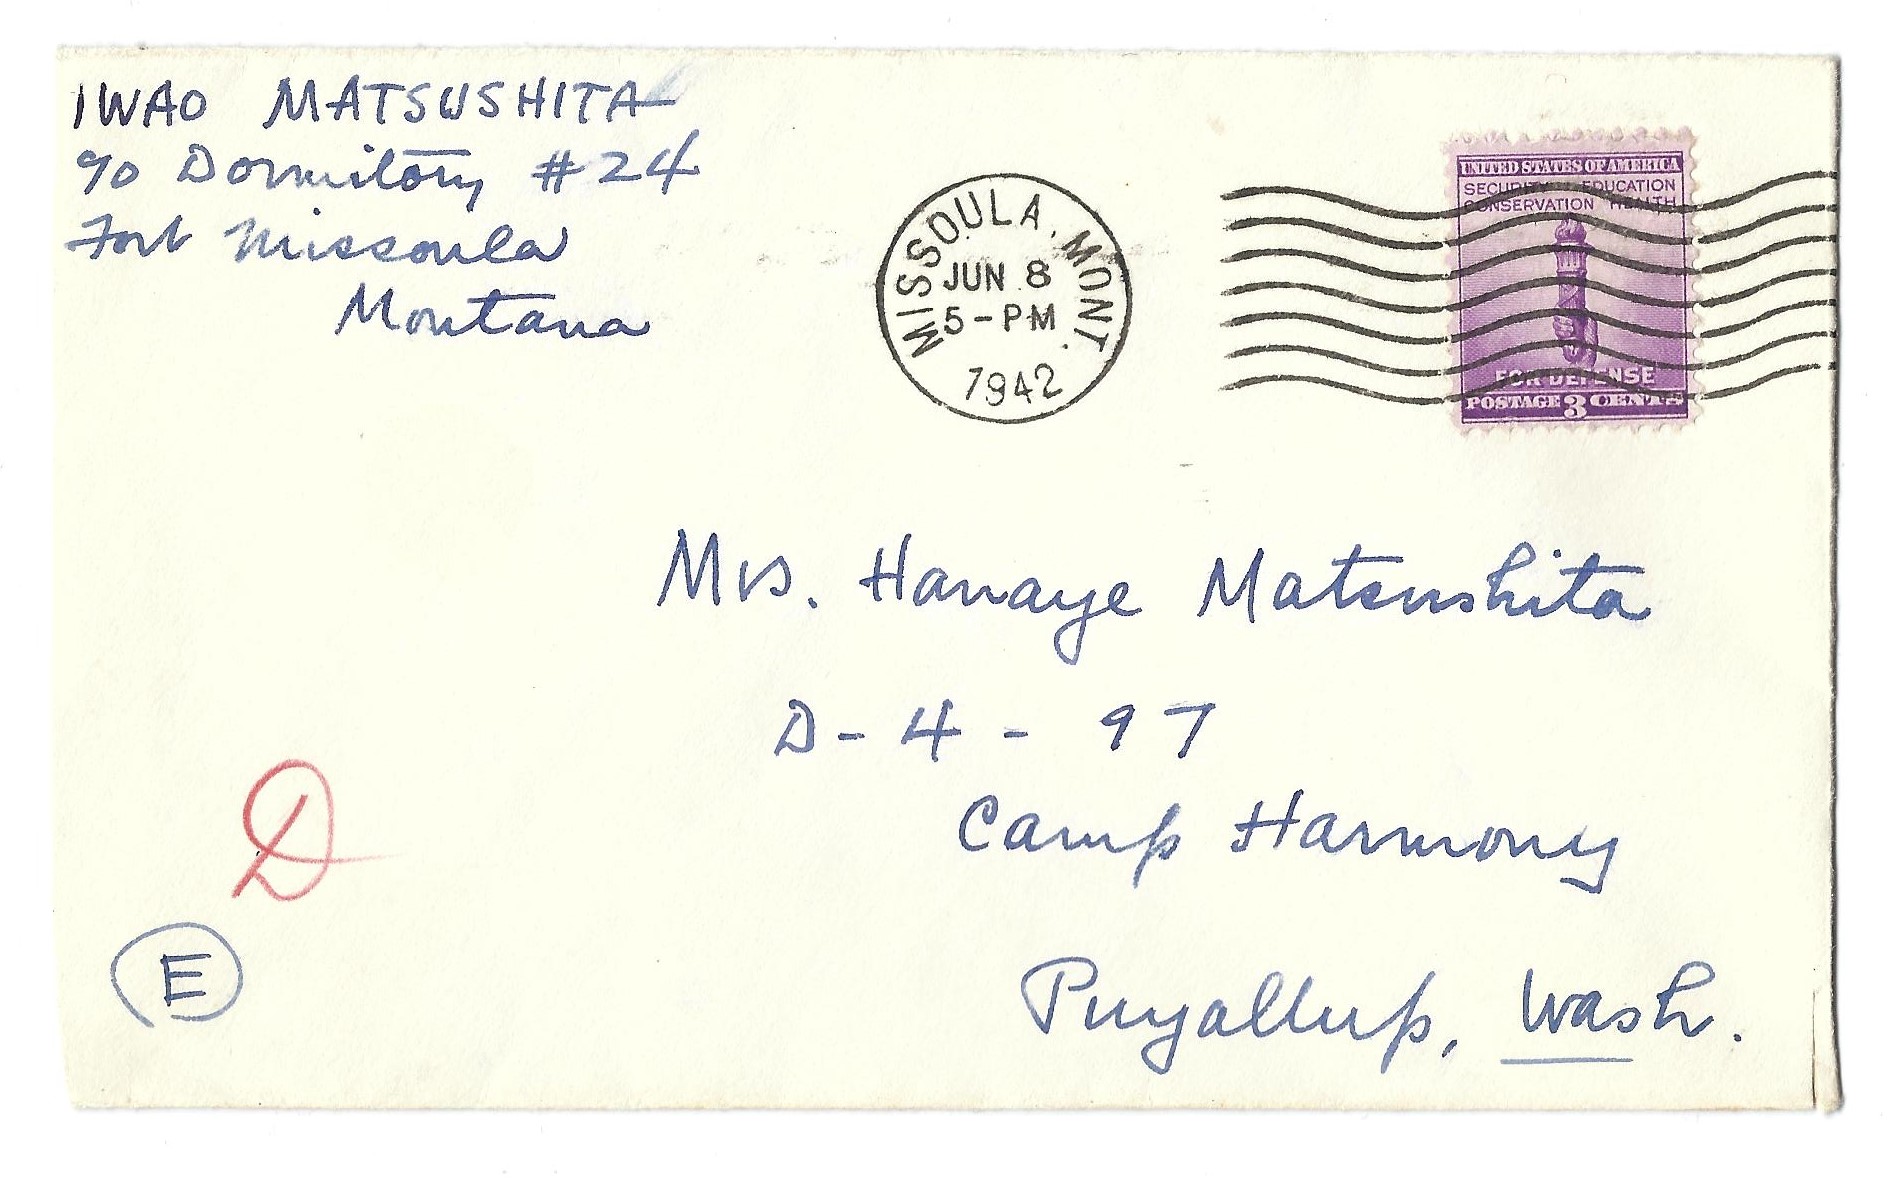 IWAO MATSUSHITA
c/o Dormitory #24
Fort Missoula
Montana
MISSOULA, MONT.
JUN 8
5-PM
1942
UNITED STATES OF AMERICA
SECURITY EDUCATION
CONSERVATION HEALTH
FOR DEFENSE
POSTAGE 3 CENTS
Mrs. Hanaye Matsushita
D-4-97
Camp Harmony
Puyallup, Wash.
D
E